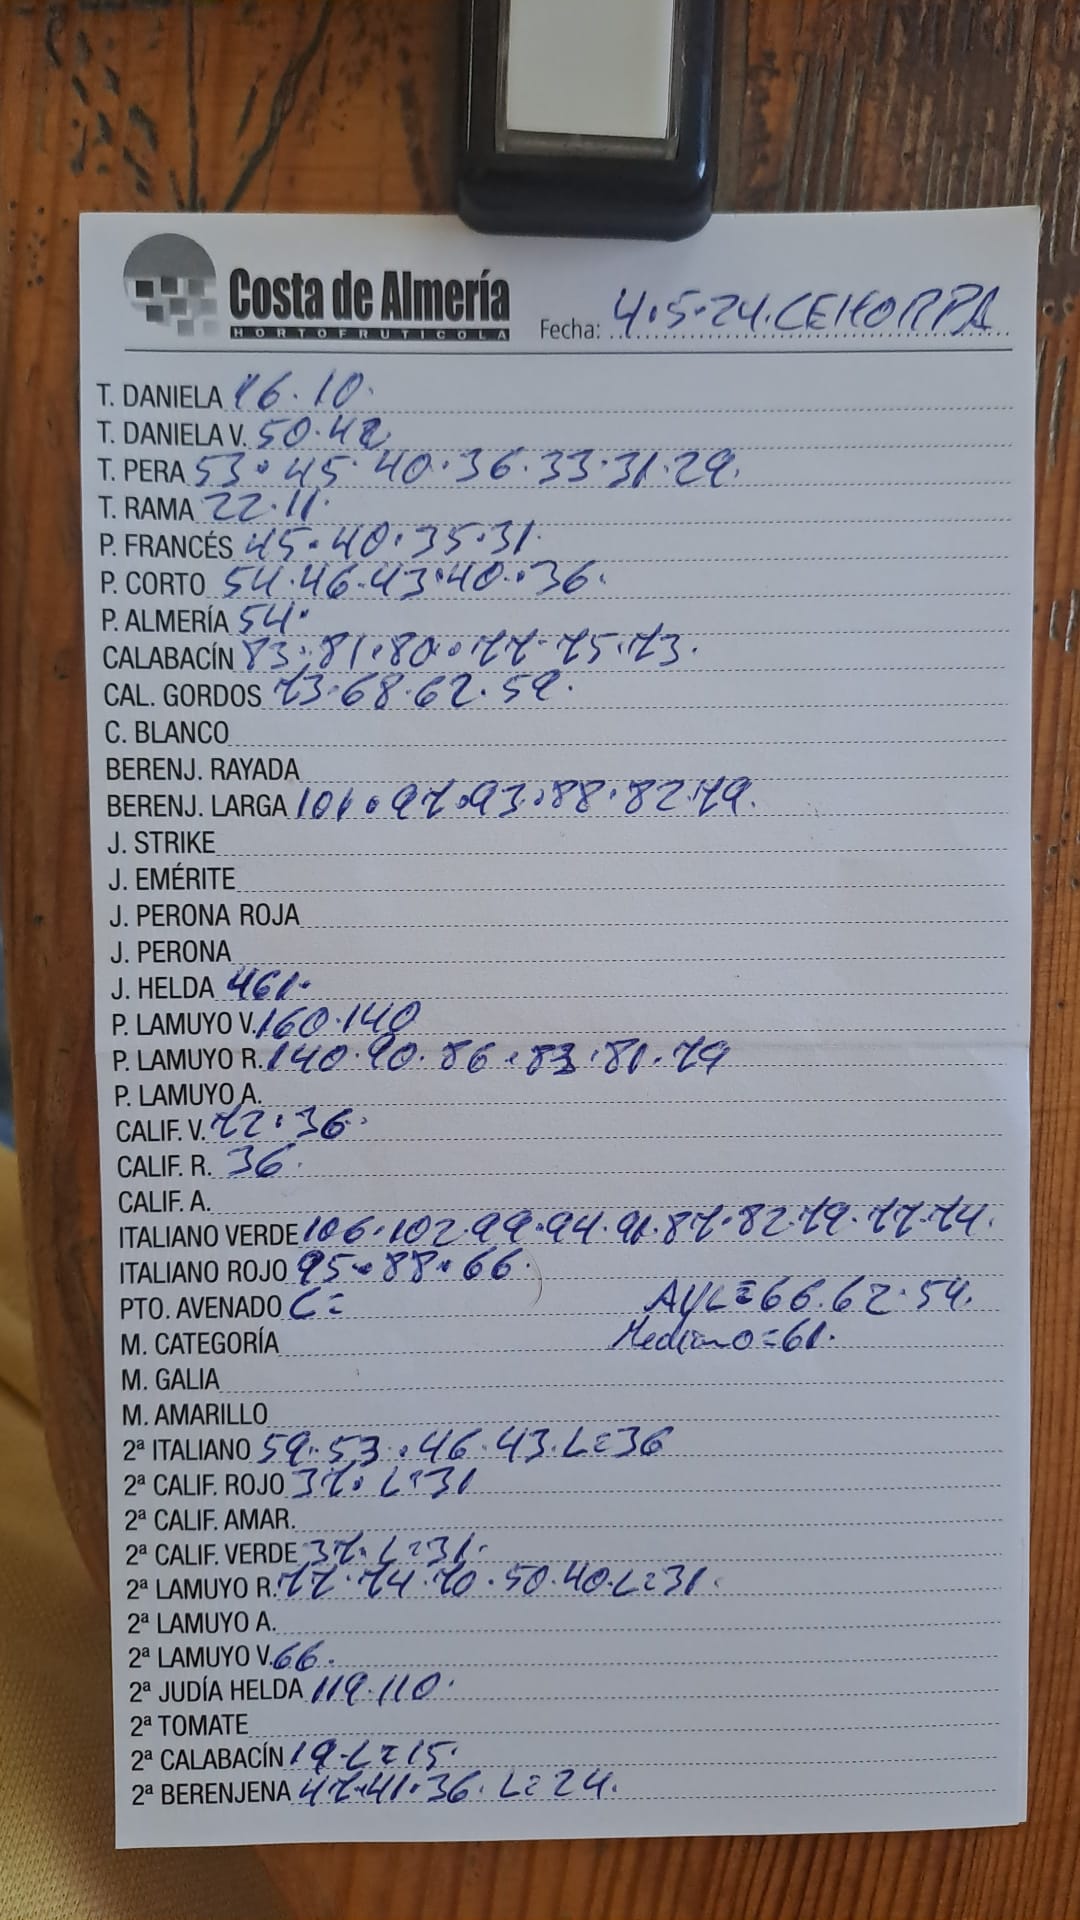 Costa de Almería
HORTOFRUTICOLA
Fecha: 4.5.24.CEHORPA
T. DANIELA 16.10.
T. DANIELA V. 50.42
T. PERA 53.45.40.36.33.31.29.
T. RAMA 22.11.
P. FRANCÉS 45.40.35.31.
P. CORTO 54.46.43.40.36.
P. ALMERÍA 54.
CALABACÍN 83.81.80.77.75.73.
CAL. GORDOS 73.68.62.59.
C. BLANCO
BERENJ. RAYADA
BERENJ. LARGA 101.97.93.88.82.79.
J. STRIKE
J. EMÉRITE
J. PERONA ROJA
J. PERONA
J. HELDA 461.
P. LAMUYO V. 160.140
P. LAMUYO R. 140.90.86.83.81.79
P. LAMUYO A.
CALIF. V. 72.36.
CALIF. R. 36.
CALIF. A.
ITALIANO VERDE 106.102.99.94.91.87.82.79.77.74.
ITALIANO ROJO 95.88.66.
PTO. AVENADO C= AyL=66.62.54.
M. CATEGORÍA Mediano=61.
M. GALIA
M. AMARILLO
2ª ITALIANO 59.53.46.43.L=36
2ª CALIF. ROJO 37.L=31
2ª CALIF. AMAR.
2ª CALIF. VERDE 37.L=31.
2ª LAMUYO R. 77.74.70.50.40.L=31.
2ª LAMUYO A.
2ª LAMUYO V. 66.
2ª JUDÍA HELDA 119.110.
2ª TOMATE
2ª CALABACÍN 19.L=15.
2ª BERENJENA 47.41.36.L=24.